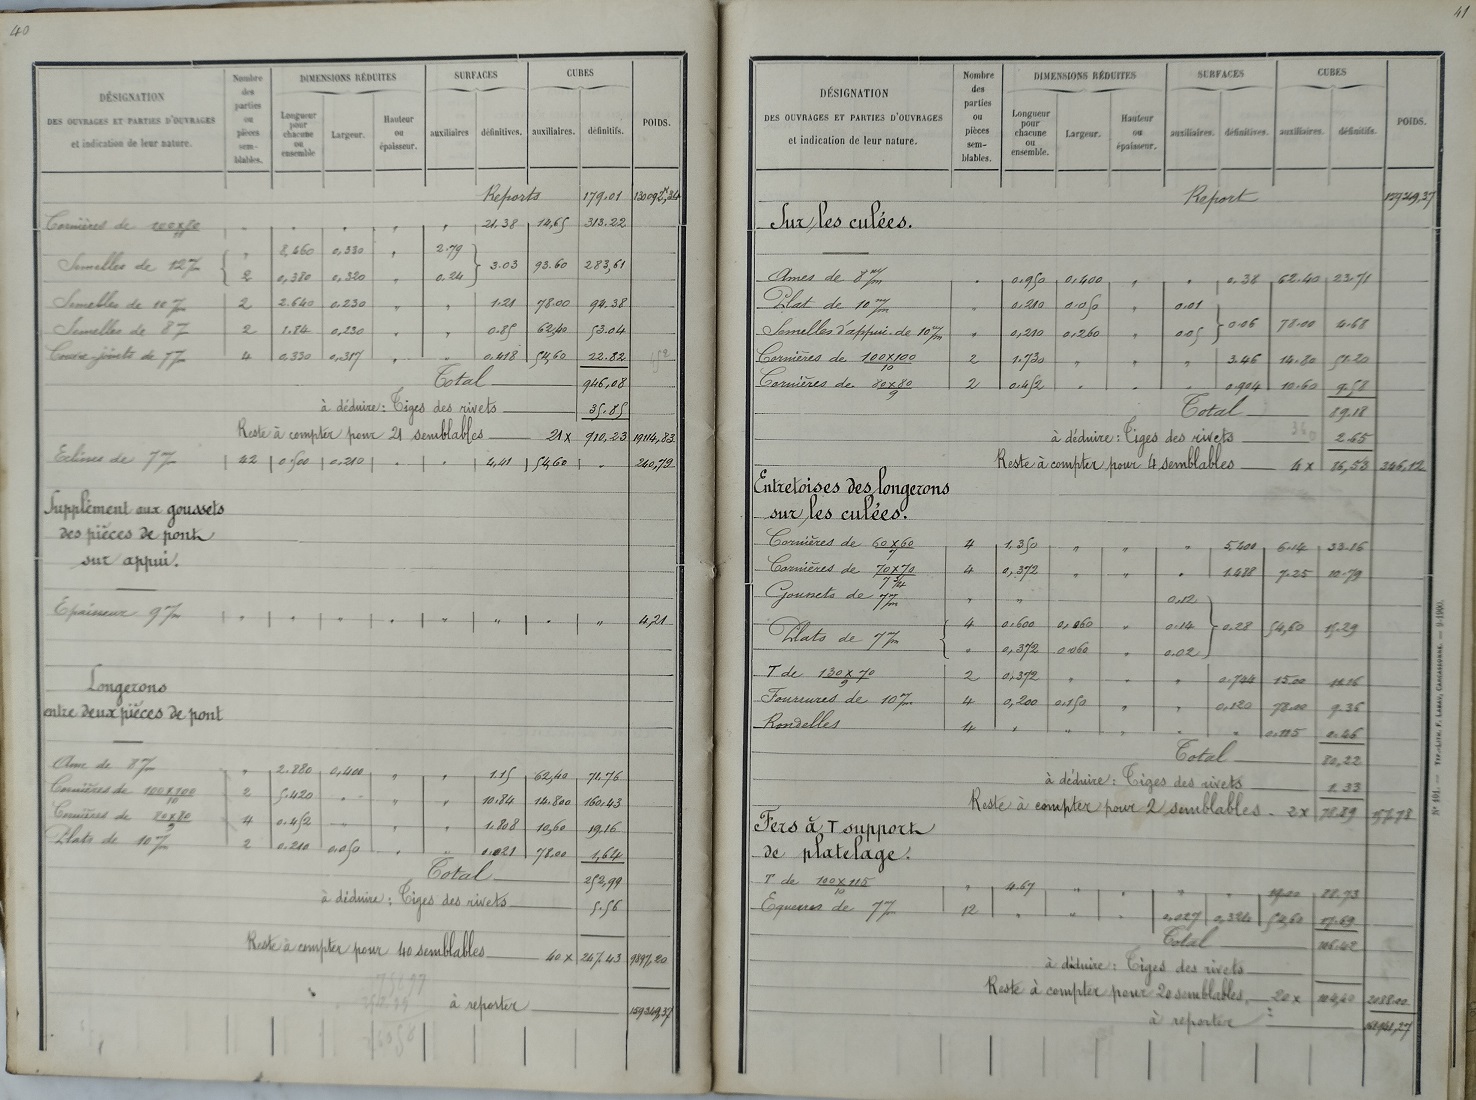 40
DÉSIGNATION
DES OUVRAGES ET PARTIES D'OUVRAGES
et indication de leur nature.
Nombre des parties ou pièces semblables.
DIMENSIONS RÉDUITES
Longueur pour chacune ou ensemble
Largeur.
Hauteur ou épaisseur.
SURFACES
auxiliaires
définitives.
CUBES
auxiliaires.
définitifs.
POIDS.
Reports 179.01 130092,34
Cornières de 21.38 14,65 313.22
Semelles de 12 7m " 8,460 0,330 2.79
3.03 93.60 283,61
2 0,380 0,320 0.24
Semelles de 10 7m 2 2.640 0,230 " " 1.21 78.00 94.38
Semelles de 8 7 2 1.84 0,230 " " 0.85 62,40 53.04
Couvre-joints de 7 7m 4 0,330 0,317 " " 0.418 54,60 22.82
Total 946,08
à déduire : Tiges des rivets 35.85
Reste à compter pour 21 semblables 21 x 910,23 19114,83
Eclisses de 7 7 42 0.500 0,210 " " 4,41 54,60 " 240,79
Supplément aux goussets
des pièces de pont
sur appui.
Epaisseur 9 7m " " " " " " " " 4,21
Longerons
entre deux pièces de pont
Ame de 8 7m " 2.880 0,400 " " 1.15 62,40 71.76
Cornières de 100x100/10 2 5.420 " " " 10.84 14.800 160.43
Cornières de 80x80/9 4 0.452 " " " 1.808 10,60 19.16
Plats de 10 7m 2 0.210 0.050 " " 0.021 78.00 1,64
Total 252,99
à déduire : Tiges des rivets 5.56
Reste à compter pour 40 semblables 40 x 247.43 9897,20
à reporter 159349,37
41
DÉSIGNATION
DES OUVRAGES ET PARTIES D'OUVRAGES
et indication de leur nature.
Nombre des parties ou pièces semblables.
DIMENSIONS RÉDUITES
Longueur pour chacune ou ensemble.
Largeur.
Hauteur ou épaisseur.
SURFACES
auxiliaires.
définitives.
CUBES
auxiliaires.
définitifs.
POIDS.
Report 159349,37
Sur les culées.
Ames de 8 m/m " 0.950 0.400 " " 0.38 62.40 23.71
Plat de 10 m/m " 0.210 0.050 " 0.01
0.06 78.00 4.68
Semelles d'appui de 10 m/m " 0,210 0,260 " 0.05
Cornières de 100x100/10 2 1.730 " " " 3.46 14.80 51.20
Cornières de 80x80/9 2 0.452 " " " 0.904 10.60 9.58
Total 89.18
à déduire : Tiges des rivets 2.65
Reste à compter pour 4 semblables 4 x 86,53 346,12
Entretoises des longerons
sur les culées.
Cornières de 60x60/7 4 1,350 " " " 5.400 6.14 33.16
Cornières de 70x70/7 4 0,372 " " " 1.488 7.25 10.79
Goussets de 7 7m " " 0,12
Plats de 7 7m 4 0.600 0,060 " 0.14 0.28 54,60 15.29
" 0,372 0.060 0.02
T de 130x70/9 2 0,372 " " " 0.744 15.00 11.16
Fourrures de 10 7m 4 0,200 0.150 " " 0,120 78.00 9.36
Rondelles 4 " " " " " 0.115 0.46
Total 80,22
à déduire : Tiges des rivets 1.33
Reste à compter pour 2 semblables 2 x 78.89 157,78
Fers à T support
de platelage.
T de 100x115/10 " 4.67 " " " " 19.00 88.73
Equerres de 7 7 12 " " " 0,027 0,324 54,60 17.69
Total 106.42
à déduire : Tiges des rivets
Reste à compter pour 20 semblables. 20 x 104,40 2088.00
à reporter 161941,27
N° 101. — Typ.-Lith. F. Labau, Carcassonne. — 9-1900.